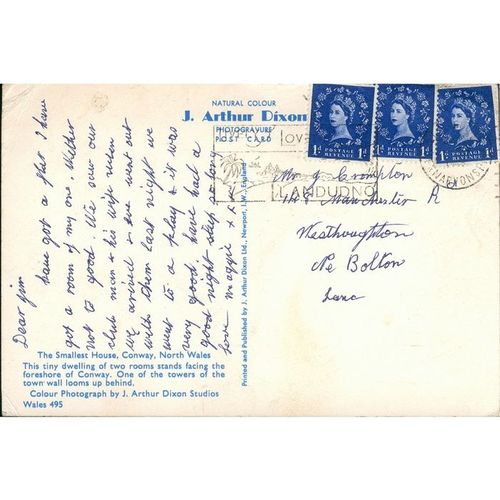 NATURAL COLOUR
J. Arthur Dixon
PHOTOGRAVURE
POST CARD
Dear Jim
have got a flat I have
got a room of my one. Wether
not to good. We saw our
club man & his wife when
we arrived & we went out
with them last night we
went to a play & it was
very good. have had a
good night sleep so long
love Maggie x x x
The Smallest House, Conway, North Wales
This tiny dwelling of two rooms stands facing the
foreshore of Conway. One of the towers of the
town wall looms up behind.
Colour Photograph by J. Arthur Dixon Studios
Wales 495
Printed and Published by J. Arthur Dixon Ltd., Newport, I.W., England
1d POSTAGE REVENUE 1d
1d POSTAGE REVENUE 1d
1d POSTAGE REVENUE 1d
LLANDUDNO
Mr J Crompton
148 Manchester R
Westhoughton
Nr Bolton
Lancs